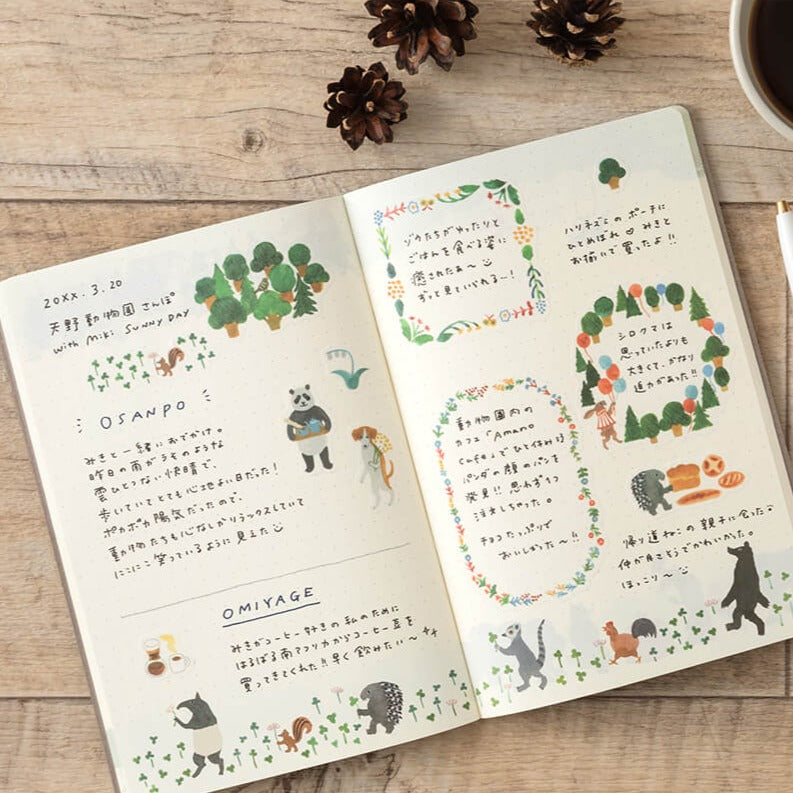 20XX.3.20
天野動物園さんぽ
with Miki SUNNY DAY
OSANPO
みきと一緒におでかけ。
昨日の雨がうそのような
雲ひとつない快晴で、
歩いていてとても心地よい日だった!
ポカポカ陽気だったので、
動物たちも心なしかリラックスしていて
にこにこ笑っているように見えた
OMIYAGE
みきがコーヒー好きの私のために
はるばる南アフリカからコーヒー豆を
買ってきてくれた!!早く飲みたい〜
ゾウたちがゆったりと
ごはんを食べる姿に
癒されたぁ〜
ずっと見ていられる〜!
ハリネズミのポーチに
ひとめぼれ♡みきと
お揃いで買ったよ!!
シロクマは
思っていたよりも
大きくて、かなり
迫力があった!!
動物園内の
カフェ「Amano
Cafe」でひと休みる
パンダの顔のパンを
発見!!思わず2つ
注文しちゃった。
チョコたっぷりで
おいしかった〜!!
帰り道ねこの親子に会った
仲が良さそうでかわいかった。
ほっこり〜